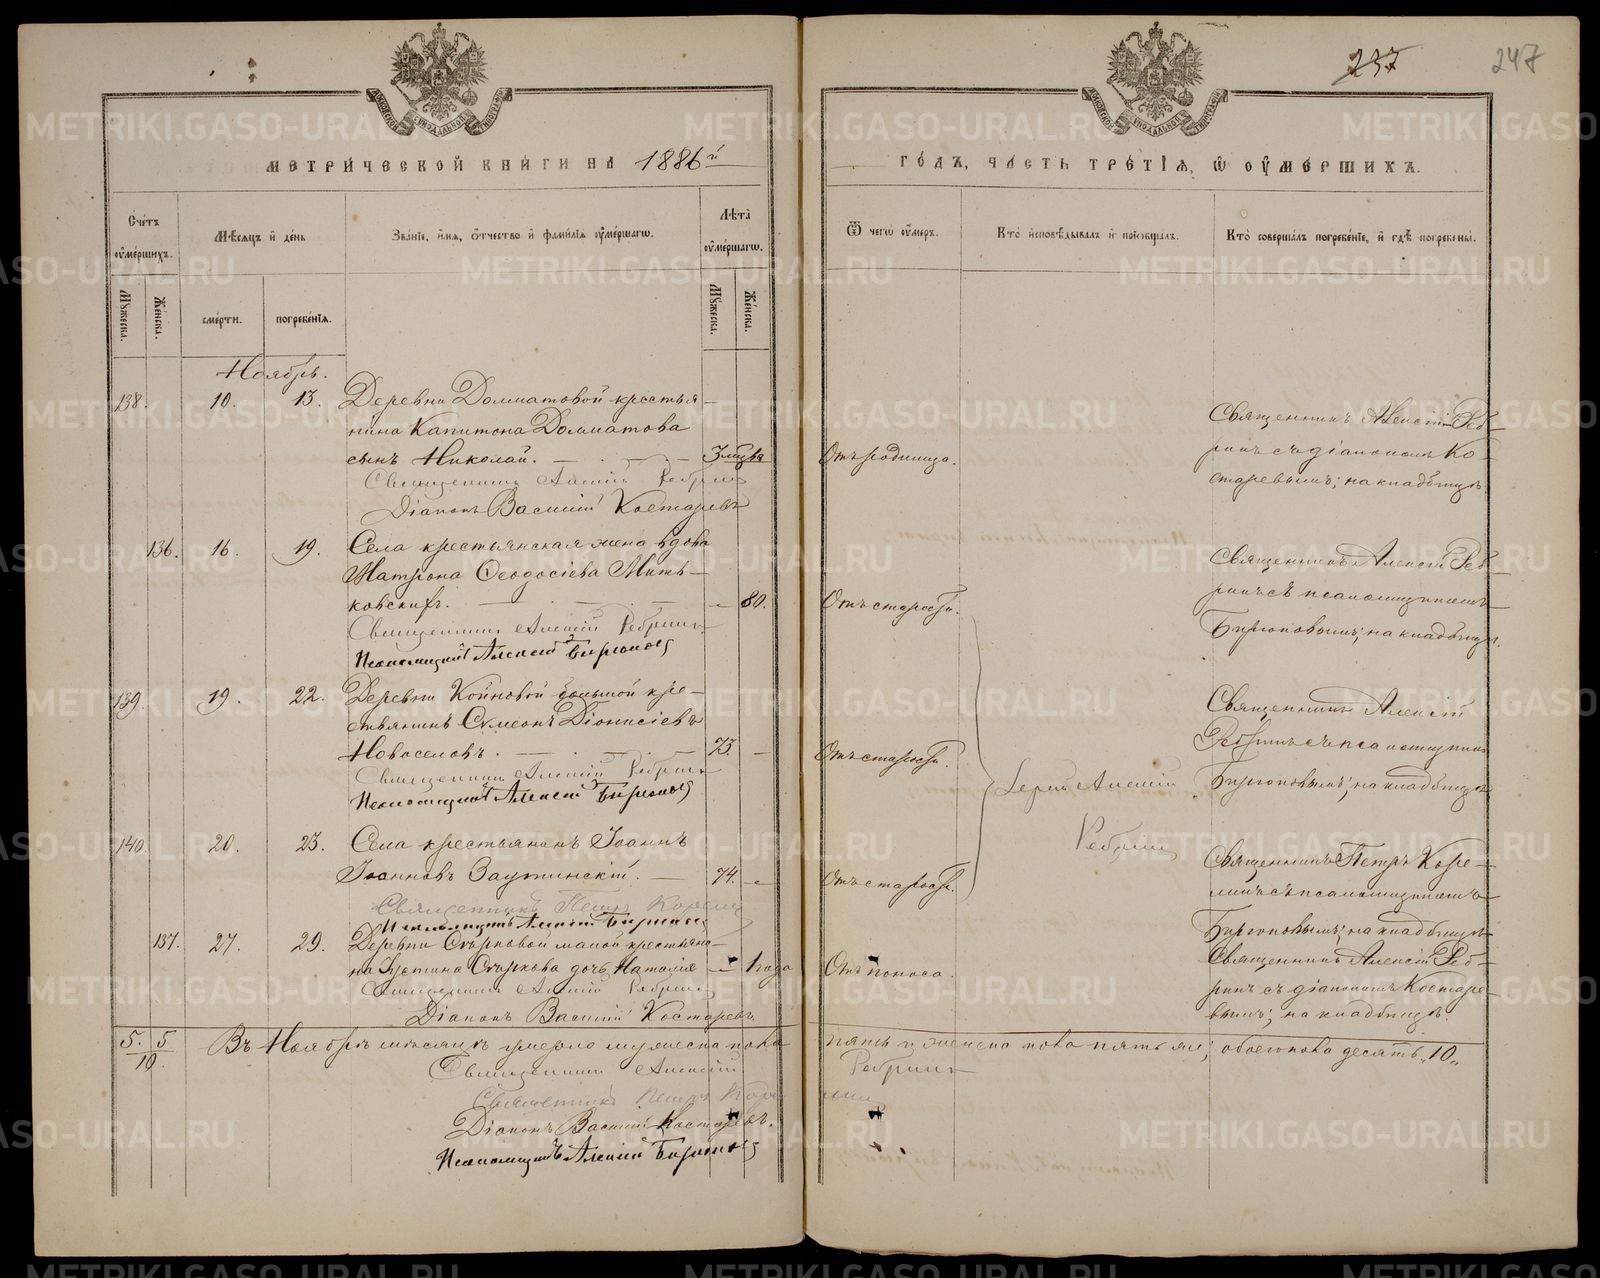 237
247
МЕТРИЧЕСКОЙ КНИГИ НА 1886й
ГОДЪ, ЧАСТЬ ТРЕТІЯ, Ѿ ОУМЕРШИХЪ.
Счетъ оумершихъ.
Мѣсяцъ и день
Званіе, имя, отчество и фамилія оумершагѡ.
Лѣта оумершагѡ.
Ѿ чегѡ оумеръ.
Кто исповѣдывалъ и пріобщалъ.
Кто совершалъ погребеніе, и гдѣ погребены.
Мужеска.
Женска.
смерти.
погребенія.
Мужеска.
Женска.
Ноябрь.
138. 10. 13. Деревни Долматовой крестья
нина Капитона Долматова
сынъ Николай. 3 мѣсца
Отъ родимца.
Священникъ Алексій Ребринъ
Діаконъ Василій Костаревъ
Священникъ Алексій Реб-
ринъ съ діакономъ Ко-
старевымъ; на кладбищѣ.
136. 16. 19. Села крестьянская жена вдова
Матрона Феодосіева Мить-
ковскихъ. 80.
Отъ старости.
Священникъ Алексій Ребринъ
Псаломщикъ Алексій Бирюковъ
Священникъ Алексій Реб-
ринъ съ псаломщикомъ
Бирюковымъ; на кладбищѣ.
139. 19. 22. Деревни Койновой большой кре-
стьянинъ Сѵмеонъ Діонисіевъ
Новоселовъ. 73
Отъ старости.
Священникъ Алексій Ребринъ
Псаломщикъ Алексій Бирюковъ
Іерей Алексій
Ребринъ
Священникъ Алексій
Ребринъ съ псаломщикомъ
Бирюковымъ; на кладбищѣ
140. 20. 23. Села крестьянинъ Іоаннъ
Іоанновъ 74.
Отъ старости.
Священникъ Петръ
Псаломщикъ Алексій Бирюковъ
Священникъ Петръ Коре-
линъ съ псаломщикомъ
Бирюковымъ; на кладбищѣ
137. 27. 29. Деревни Старковой малой крестьяни-
на Іустина Старкова дочь Наталія 1 года
Отъ поноса.
Священникъ Алексій Ребринъ
Діаконъ Василій Костаревъ.
Священникъ Алексій Реб-
ринъ съ діакономъ Костаре-
вымъ; на кладбищѣ.
5. 5
10.
Въ Ноябрѣ мѣсяцѣ умерло мужеска пола
пять и женска пола пять же; обоего пола десять „10„
Священникъ Алексій Ребринъ
Священникъ Петръ Корелинъ
Діаконъ Василій Костаревъ.
Псаломщикъ Алексій Бирюковъ
METRIKI.GASO-URAL.RU